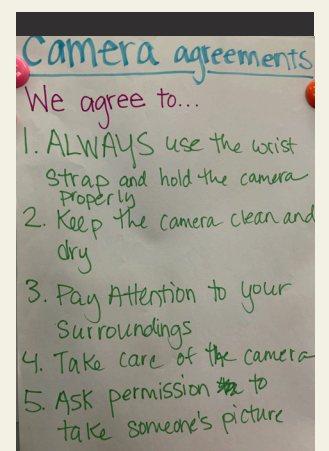 Camera agreements
We agree to...
1. ALWAYS use the wrist
strap and hold the camera
properly
2. Keep the camera clean and
dry
3. Pay Attention to your
Surroundings
4. Take care of the camera
5. Ask permission to
take someone's picture